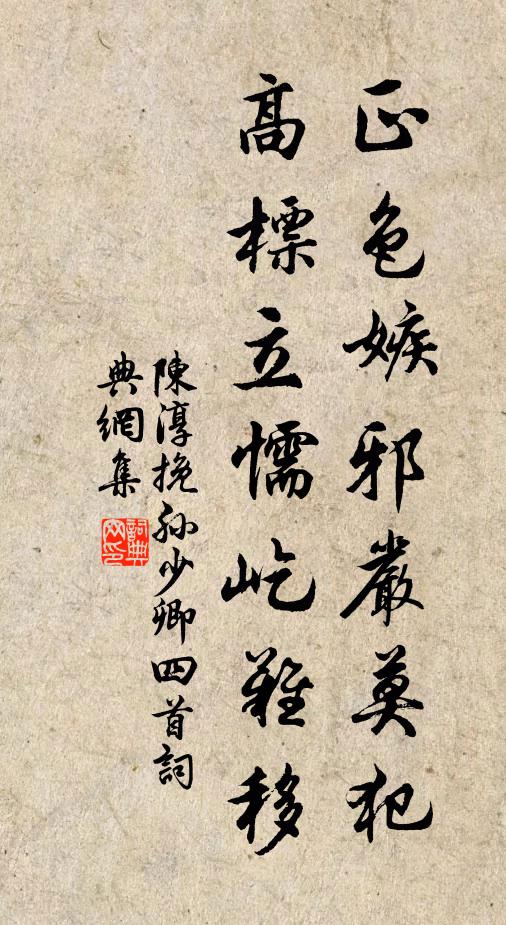 正色嫉邪嚴莫犯
高標立懦屹難移
陳淳挽孫少卿四首詞
典網集
詞典
网印